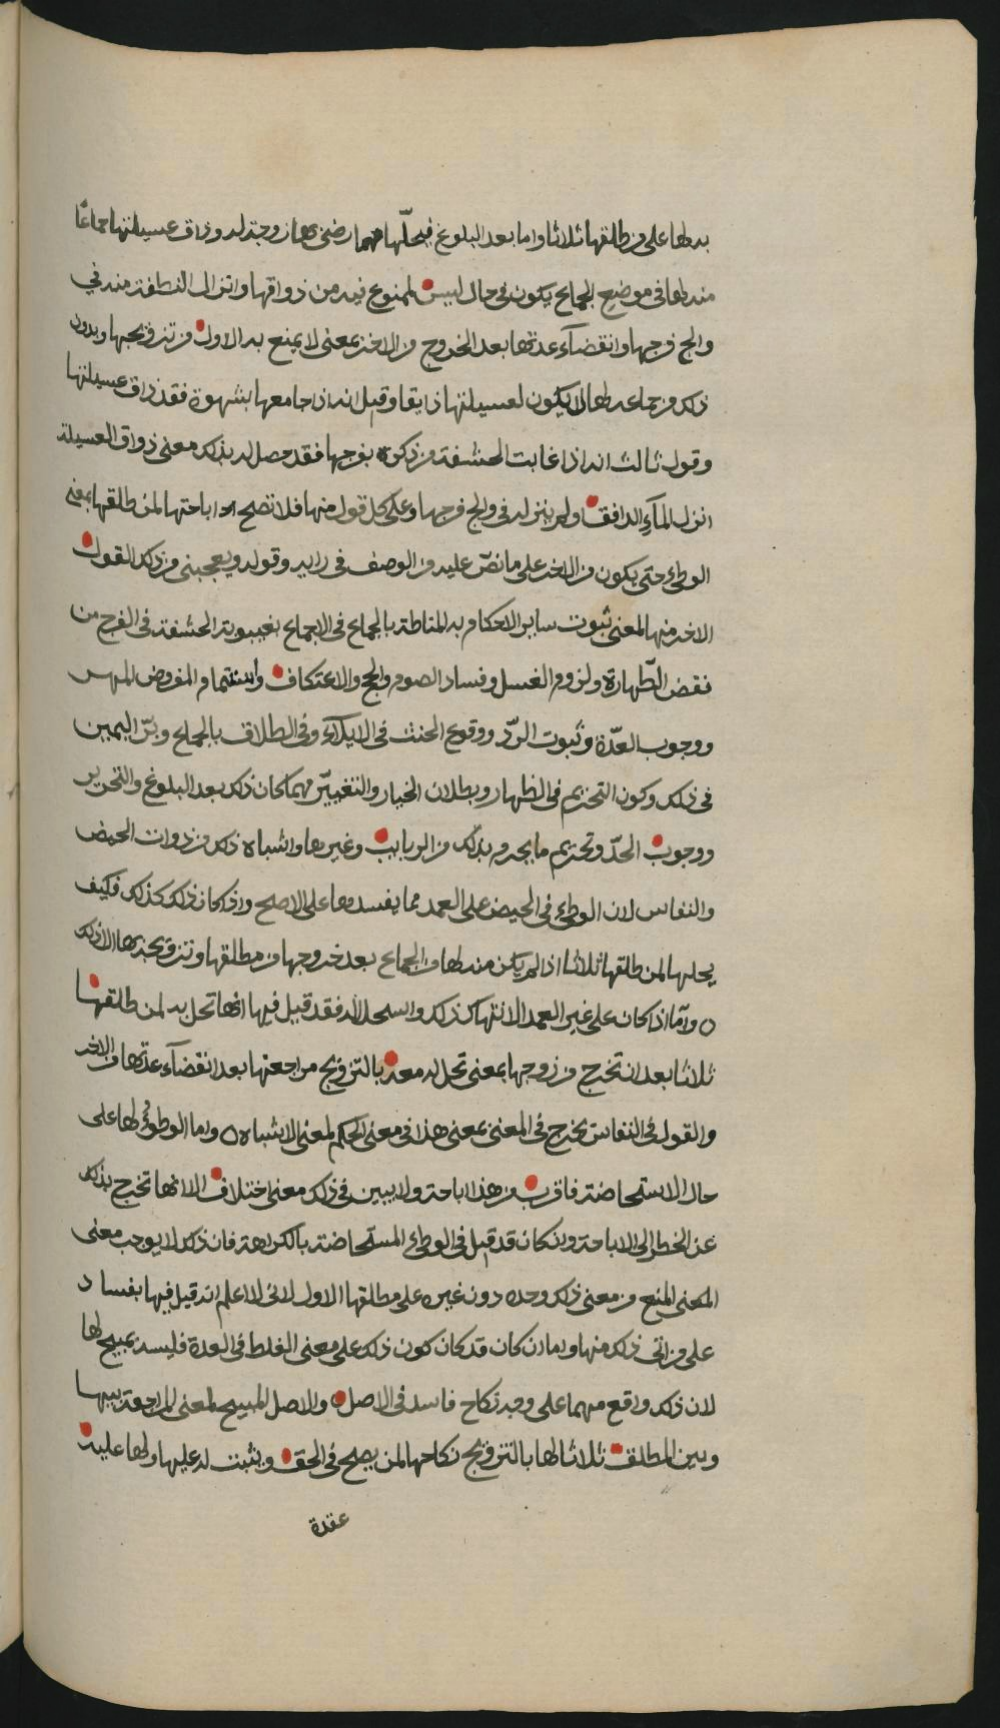 به لها على من طلقها ثلاثا واما بعد البلوغ فيحلّها مهما رضى بها زوجة له وذاق عسيلتها جماعًا
منه لها فى موضع الجماع يكون فى حال ليس بممنوع فيه من ذواقها وانزال النطفة منه في
والج فرجها وانقضآء عدتها بعد الخروج من الاخر بمعنى لا يمنع به الاول من تزويجها وبدون
ذلك من جماعه لها لا يكون لعسيلتها ذايقا وقيل انه اذا جامعها بشهوة فقد ذاق عسيلتها
وقول ثالث انه اذا غابت الحشفة من ذكره بفرجها فقد حصل له بذلك معنى ذواق العسيلة
انزل المآء الدافق او لم ينزله فى والج فرجها وعلى كل قول منها فلا تصلح اباحتها لمن طلقها بمعنى
الوطئ حتى يكون من الاخر على ما نصّ عليه من الوصف فى رايه وقوله ويعجبنى من ذلك القول
الاخر منها لمعنى ثبوت ساير الاحكام به المناطة بالجماع فى الاجماع بغيبوبة الحشفة فى الفرج من
نقض الطّهارة ولزوم الغسل وفساد الصوم والحج والاعتكاف واستتمام المفروض المهر
ووجوب العدّة وثبوت الردّ ووقوع الحنث فى الايلآء وفى الطلاق بالجماع وبرّ اليمين
فى ذلك وكون التحريم فى الظهار وبطلان الخيار والتغييّر مهما كان ذلك بعد البلوغ والتحرير
ووجوب الحدّ وتحريم ما يحرم بذلك من الربايب وغيرها واشباه ذلك من ذوات الحيض
والنفاس لان الوطئ فى الحيض على العمد مما يفسدها على الاصح واذا كان ذلك كذلك فكيف
يحلها لمن طلقها ثلاثا اذا لم يكن منه لها من الجماع بعد خروجها من مطلقها وتزويجه بها الا ذلك
ه وامّا اذا كان على غير العمد لانتهاك ذلك واستحلاله فقد قيل فيها انها تحل به لمن طلقها
ثلاثا بعد ان تخرج من زوجها بمعنى تحل له معه بالتّزويج مراجعتها بعد انقضآء عدتها من الاخر
والقول فى النفاس يخرج فى المعنى بمعنى هذا فى معنى الحكم لمعنى الاشباه ه واما الوطؤ لها على
حال الاستحاضة فاقرب من هذا اباحة ولا يبين فى ذلك معنى اختلاف الا انها تخرج بذلك
عن الحظر الى الاباحة وان كان قد قيل فى الوطئ المستحاضة بالكراهة فان ذلك لا يوجب معنى
المعنى المنع من معنى ذلك وحده دون غيره على مطلقها الاول لانى لا اعلم انه قيل فيها بفساد
على من اتى ذلك منها واما ان كان قد كان كون ذلك على معنى الغلط فى العدة فليس بمبيح لها
لان ذلك واقع مهما على وجه نكاح فاسد فى الاصل والاصل المبيح لمعنى المراجعة بينها
وبين المطلق ثلاثا لها بالتزويج نكاحها لمن يصلح فى الحق ويثبت له عليها ولها عليه
عقدة